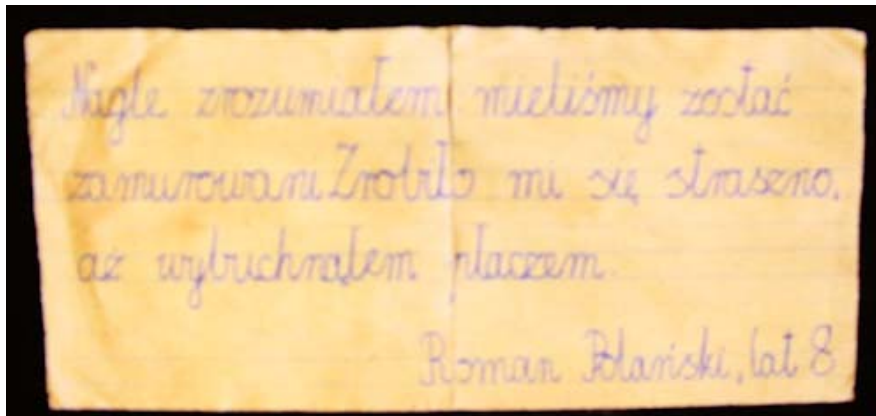 Nagle zrozumiałem mieliśmy zostać
zamurowani Zrobiło mi się straszno,
aż wybuchnąłem płaczem.
Roman Polański, lat 8